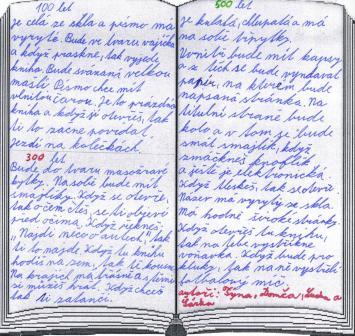 100 let
je celá ze skla a písmo má
vyryto. Bude ve tvaru vajíčka
a když praskne, tak vyjede
kniha. Bude svázaní velkou
mašlí. Písmo chce mít
vlnitou čarou. Je to prázdná
kniha a když jí otevřeš, tak
ti to začne povídat.
Jezdí na kolečkách.
300 let
Bude do tvaru masožravé
kytky. Na sobě bude mít
smajlíky. Když se otevře,
tak o čem čteš, se ti objeví
před očima. Když řekneš
„Najdi něco o autech", tak
ti to najde. Když tu knihu
hodíš na zem, tak tě kousne.
Na krajích má třásně a s nima
si můžeš hrát. Když chceš
tak ti zatančí.
500 let
je kulatá, chlupatá a má
na sobě třpytky.
Uvnitř bude mít kapsy
a z tích se bude vyndavat
papír, na kterém bude
napsaná stránka. Na
titulní straně bude
kolo a v tom je bude
smát smajlík, když
zmáčkneš knoflík
a ještě je elektronická.
Když tleskeš, tak se otevře.
Název má vyrytý ze skla.
Má hodně široké stránky.
Když otevřeš tu knihu,
tak na tebe vystříkne
voňavka. Když bude pro
kluky, tak na ně vystřelí
fotbalový míč.
autoři: Týna, Domča, Luda a
Šárka